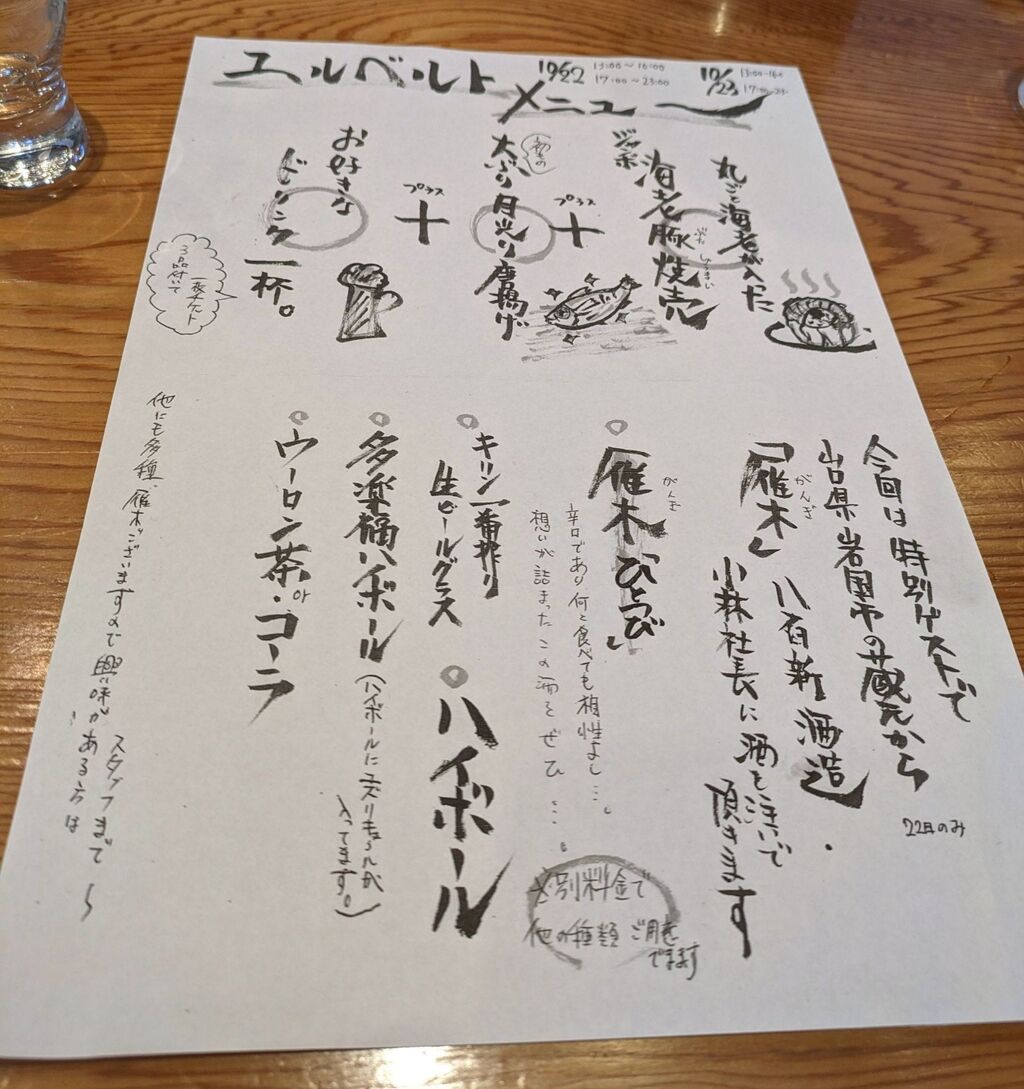 エルベルト メニュー
10/22 13:00〜16:00
17:00〜23:00
10/23 13:00-16:00
17:00-23:
丸ごと海老が入った
ジャンボ
海老豚焼売
ぶた しゅうまい
プラス
＋
大ぶり月光り唐揚げ
プラス
＋
お好きな
ドリンク一杯。
3品付いて
一枚チケット
今回は特別ゲストで
山口県岩国市の蔵元から
「雁木」八百新酒造
がんぎ
小林社長に酒を注いで
頂きます
22日のみ
「雁木 ひとつび」
がんぎ
辛口であり何と食べても相性よし…。
想いが詰まったこの酒をぜひ…。
※別料金で
他の種類ご用意
できます
キリン一番搾り
生ビールグラス
ハイボール
多楽福ハイボール
(ハイボールにユズリキュールが
入ってます。)
ウーロン茶or・コーラ
他にも多種、雁木ございますので興味がある方は
スタッフまで〜